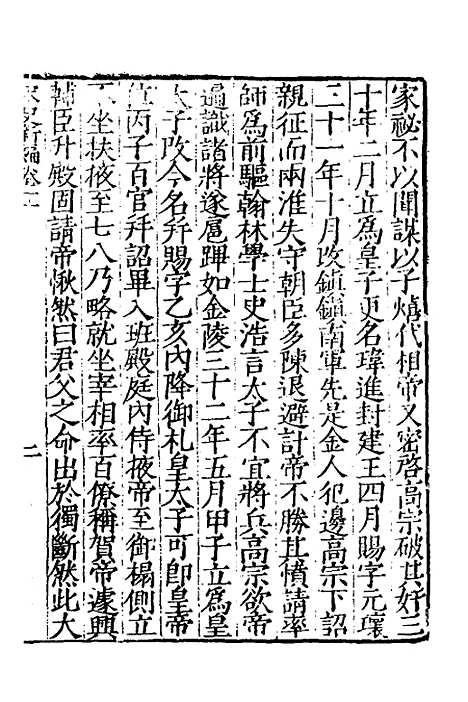 家祕不以聞謀以子熺代相帝又密啓高宗破其奸三
十年二月立爲皇子更名瑋進封建王四月賜字元瓌
三十一年十月改鎮鎮南軍先是金人犯邊高宗下詔
親征而兩淮失守朝臣多陳退避計帝不勝其憤請率
師爲前驅翰林學士史浩言太子不宜將兵高宗欲帝
遍識諸將遂扈蹕如金陵三十二年五月甲子立爲皇
太子改今名幷賜字乙亥內降御札皇太子可卽皇帝
位丙子百官拜詔畢入班殿庭內侍掖帝至御榻側立
不坐扶掖至七八乃略就坐宰相率百僚稱賀帝遽興
輔臣升殿固請帝愀然曰君父之命出於獨斷然此大
宋史新編卷十一
二